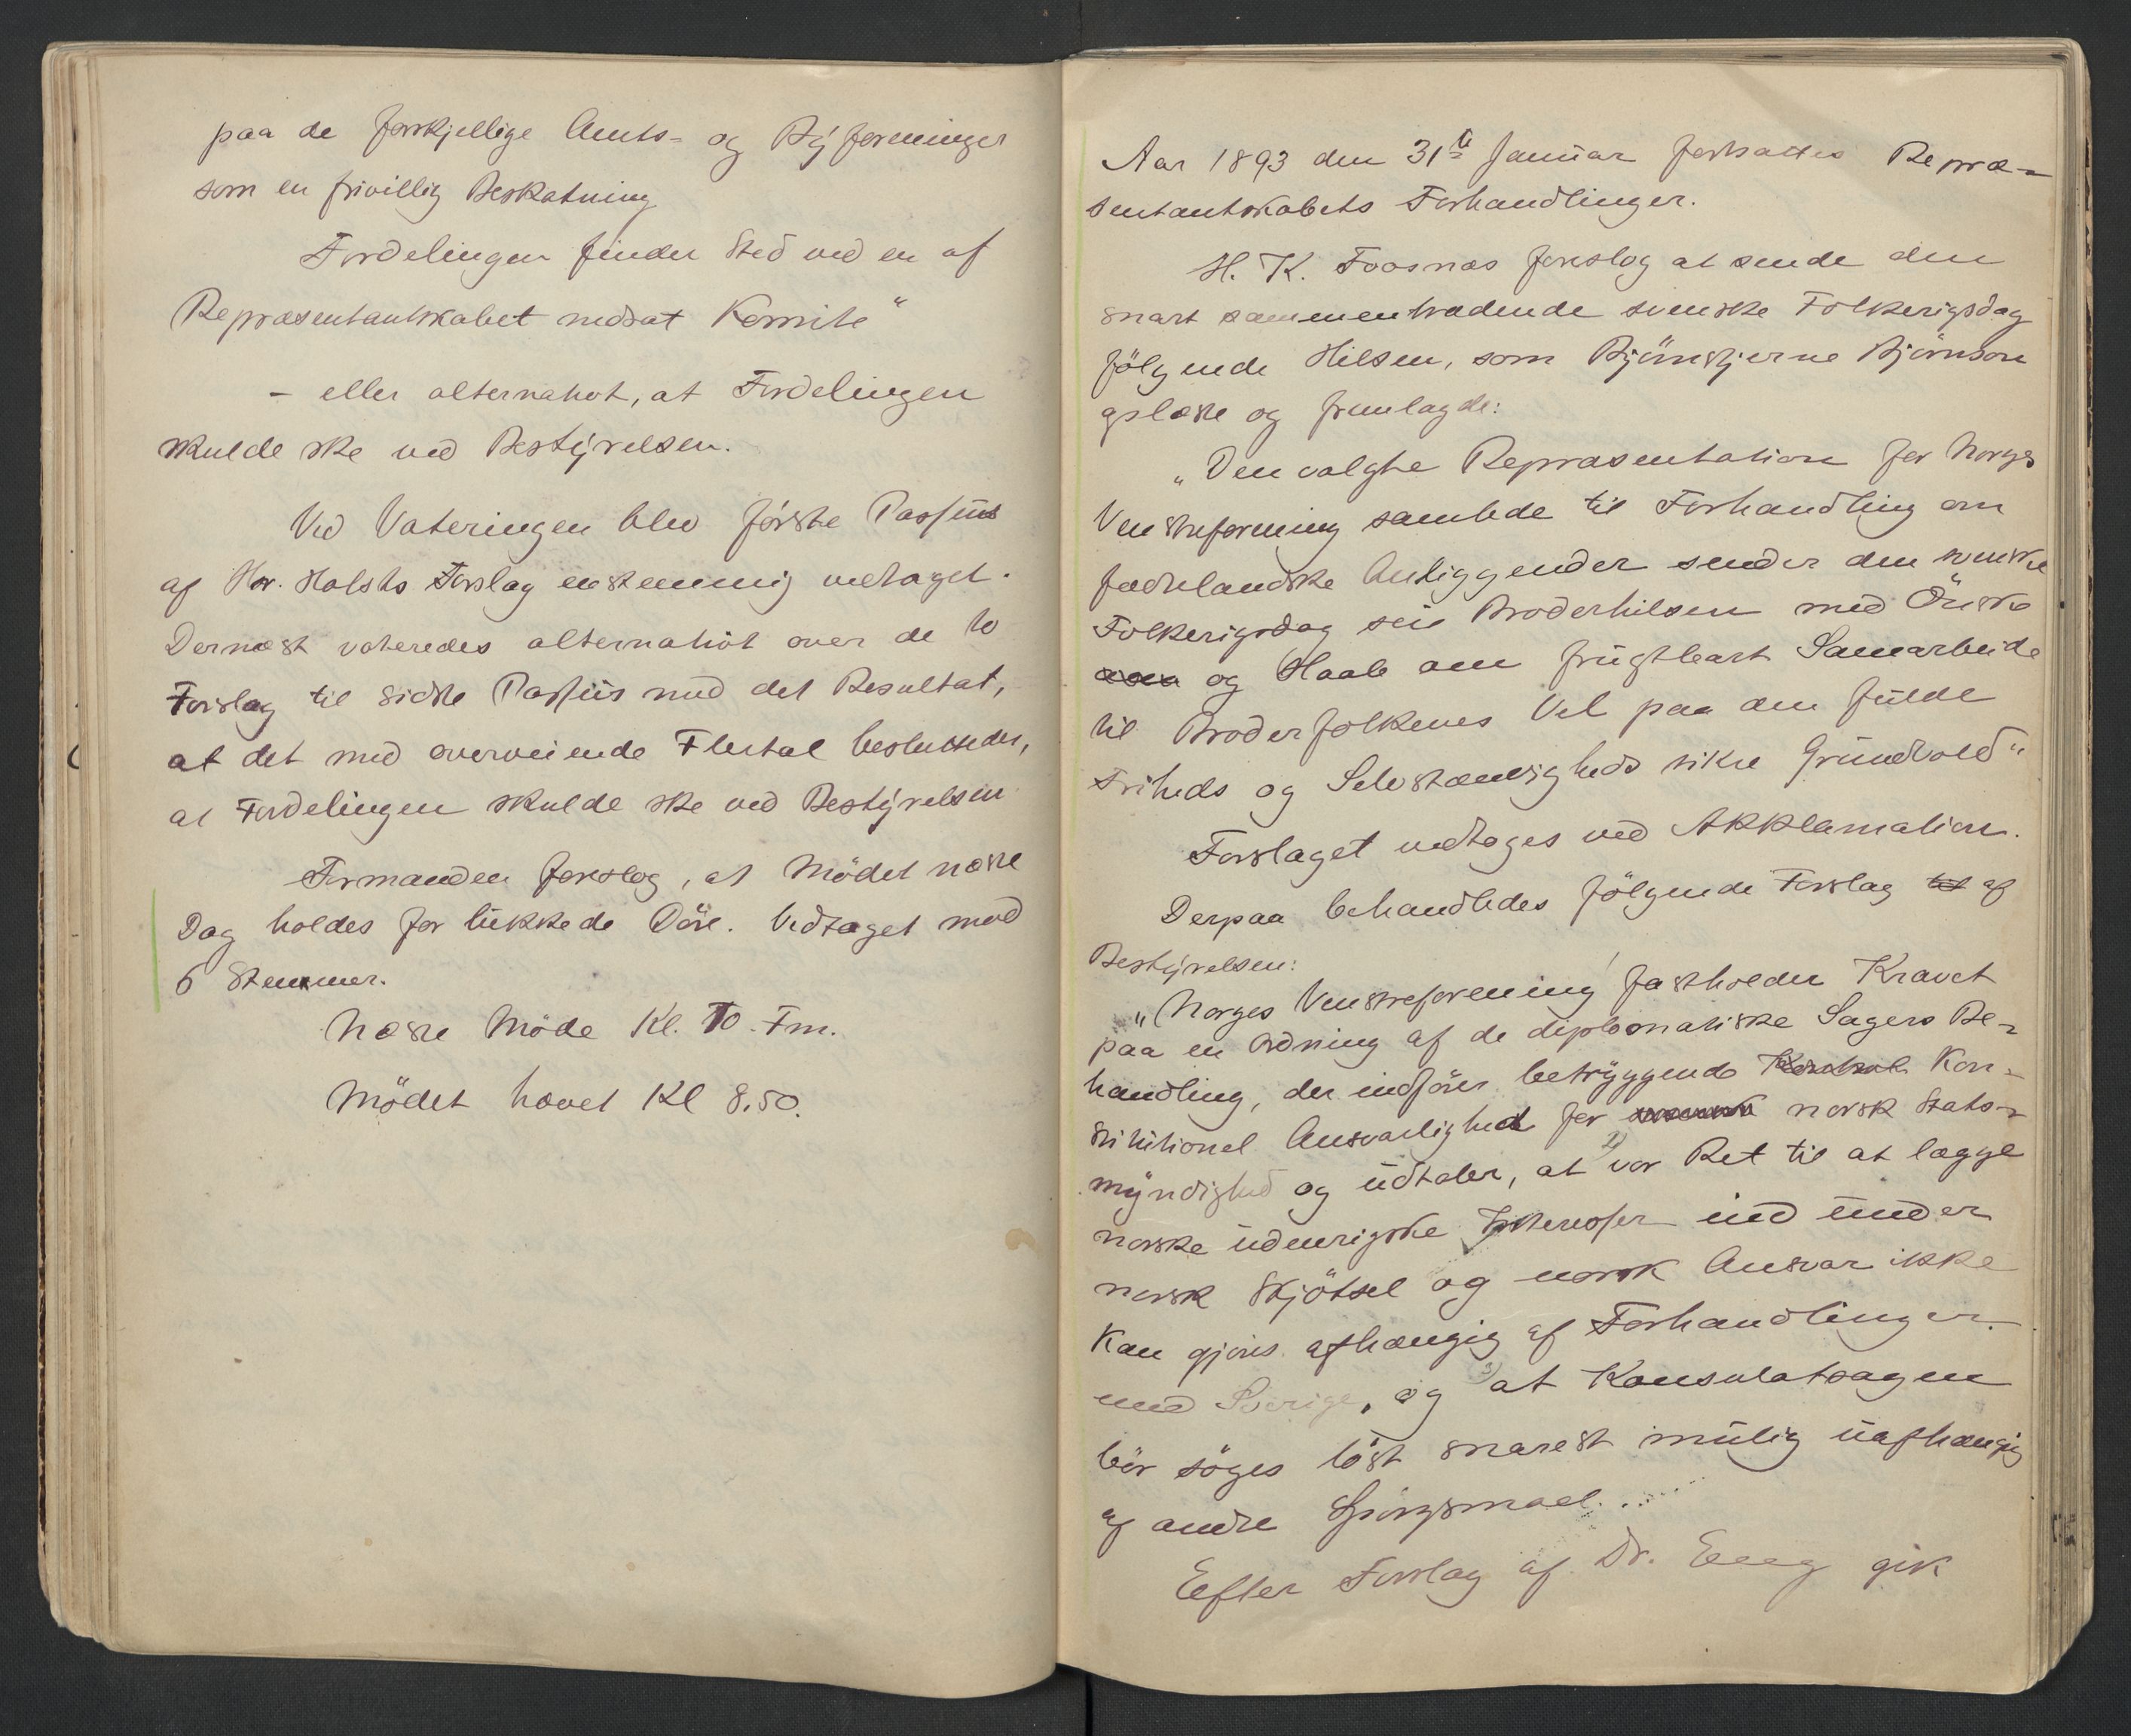 paa de forskjellige Amts- og Byforeninger
som en frivillig Beskatning
Fordelingen finder Sted ved en af
Repræsentantskabet nedsat Komite"
- eller alternativt, at Fordelingen
skulde ske ved Bestyrelsen.
Ved Voteringen blev første Passus
af Hr. Holsts Forslag enstemmig vedtaget.
Dernæst voteredes alternativt over de to
Forslag til sidste Passus med det Resultat,
at det med overveiende Flertal besluttedes,
at Fordelingen skulde ske ved Bestyrelsen
Formanden foreslog, at Mödet næste
Dag holdes for lukkede Döre. Vedtaget mod
6 Stemmer.
Næste Möde Kl. 10 Fm.
Mödet hævet Kl 8.50.
Aar 1893 den 31te Januar fortsattes Repræ-
sentantskabets Forhandlinger.
H. K. Foosnæs foreslog at sende den
snart sammentrædende svenske Folkerigsdag
fölgende Hilsen, som Björnstjerne Björnson
oplæste og fremlagde:
"Den valgte Repræsentation for Norges
Venstreforening samlede til Forhandling om
fædrelandske Anliggender sender den svenske
Folkerigsdag sin Broderhilsen med Önske
og Haab om frugtbart Samarbeide
til Broderfolkenes Vel paa den fulde
Friheds og Selvstændigheds sikre Grundvold"
Forslaget vedtoges ved Akklamation.
Derpaa behandledes fölgende Forslag til af
Bestyrelsen:
"Norges Venstreforening fastholder Kravet
paa en Ordning af de diplomatiske Sagers Be-
handling, der indfører betryggende Kontrol Kon-
stitutionel Ansvarlighed for norsk Stats-
myndighed og udtaler, at 1) vor Ret til at lægge
norske udenrigske Interesser ind under
norsk Skjötsel og norsk Ansvar ikke
kan gjøres afhængig af Forhandlinger
med Sverige, og 2) at Konsulatsagen
bör söges löst snarest mulig uafhængig
af andre Spörgsmaal.
Efter Forslag af Dr. gik